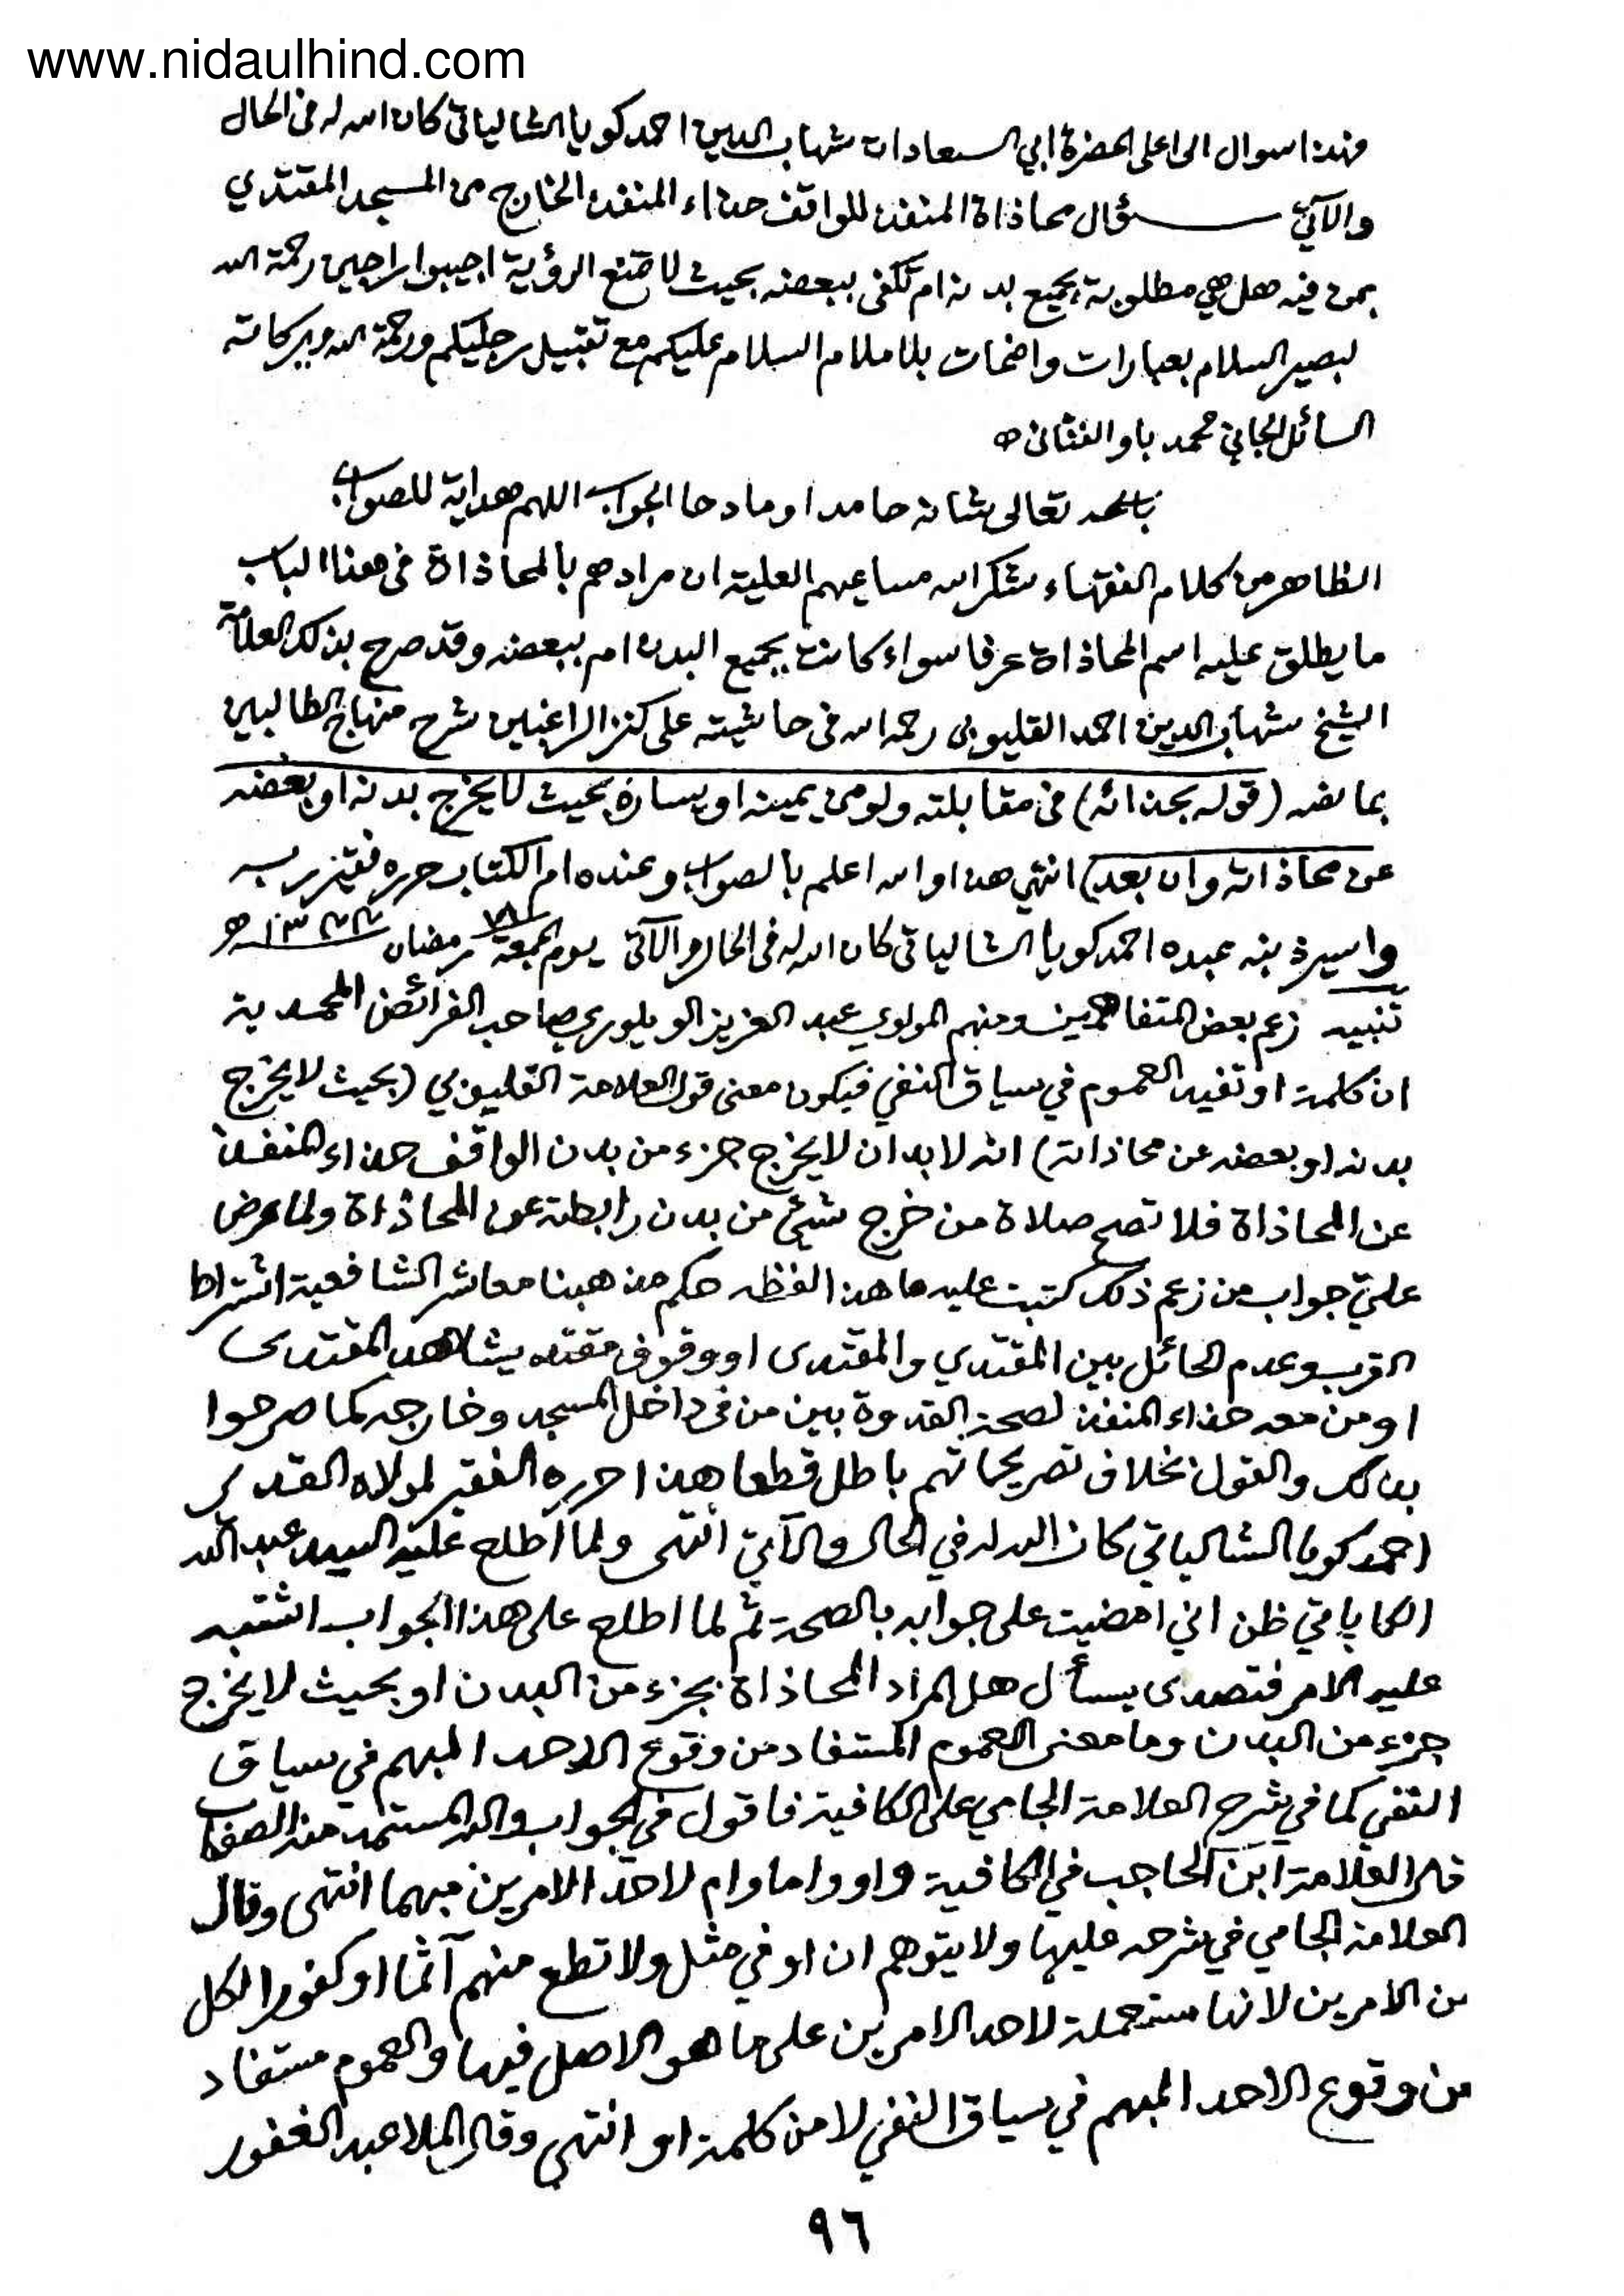 www.nidaulhind.com
فهذا سوال الى اعلى الحضرة ابي السعادات شهاب الدين احمد كويا الشالياتى كان الله له فى الحال
والآتي سؤال محاذاة المنفذ للواقف حذاء المنفذ الخارج من المسجد المقتدي
بمن فيه هل هي مطلوبة بجميع بدنه ام تكفى ببعضه بحيث لا تمنع الرؤية اجيبوا راجين رحمة الله
لبصير السلام بعبارات واضحات بلا ملام السلام عليكم مع تقبيل رجليكم ورحمة الله وبركاته
السائل الجاني محمد باوا
تعالى شانه حامدا ومادحا الجواب اللهم هداية للصواب
الظاهر من كلام الفقهاء شكر الله مساعيهم العلية ان مرادهم بالمحاذاة فى هذا الباب
ما يطلق عليه اسم المحاذاة عرفا سواء كانت بجميع البدن ام ببعضه وقد صرح بذلك العلامة
الشيخ شهاب الدين احمد القليوبى رحمه الله فى حاشيته على كنز الراغبين شرح منهاج الطالبين
بما نصه (قوله بحذائه) فى مقابلته ولو من يمينه او يساره بحيث لا يخرج بدنه او بعضه
عن محاذاته وان بعد) انتهى هذا والله اعلم بالصواب وعنده ام الكتاب حرره فقير ربه
واسير ذنبه عبده احمد كويا الشالياتى كان الله له فى الحال والآتى يوم الجمعة رمضان
تنبيه زعم بعض المتفاهمين ومنهم المولوي عبد العزيز الويلوري صاحب الفرائض المحمدية
ان كلمة او تفيد العموم في سياق النفي فيكون معنى قول العلامة القليوبي (بحيث لا يخرج
بدنه او بعضه عن محاذاته) انه لا بد ان لا يخرج جزء من بدن الواقف حذاء المنفذ
عن المحاذاة فلا تصح صلاة من خرج شيئ من بدن رابطته عن المحاذاة ولما عرض
عليّ جواب من زعم ذلك كتبت عليه ما هذا لفظه حكم مذهبنا معاشر الشافعية اشتراط
القرب وعدم الحائل بين المقتدي والمقتدى او وقوف مقتد يشاهد المقتدى
او من معه حذاء المنفذ لصحة القدوة بين من فى داخل المسجد وخارجه كما صرحوا
بذلك والقول بخلاف تصريحاتهم باطل قطعا هذا حرره الفقير لمولاه القدير
احمد كويا الشالياتي كان الله له في الحال والآتي انتهى ولما اطلع عليه السيد عبد الله
ظن اني امضيت على جوابه بالصحة ثم لما اطلع على هذا الجواب اشتبه
عليه الامر فتصدى يسأل هل المراد المحاذاة بجزء من البدن او بحيث لا يخرج
جزء من البدن وما معنى العموم المستفاد من وقوع الاحد المبهم في سياق
النفي كما في شرح العلامة الجامي على الكافية فاقول فى الجواب والله المستمد منه الصواب
قال العلامة ابن الحاجب في الكافية واو واما وام لاحد الامرين مبهما انتهى وقال
العلامة الجامي في شرحه عليها ولا يتوهم ان او في مثل ولا تطع منهم آثما او كفورا لكل
من الامرين لانها مستعملة لاحد الامرين على ما هو الاصل فيها والعموم مستفاد
من وقوع الاحد المبهم في سياق النفي لا من كلمة او انتهى وقال الملا عبد الغفور
٩٦